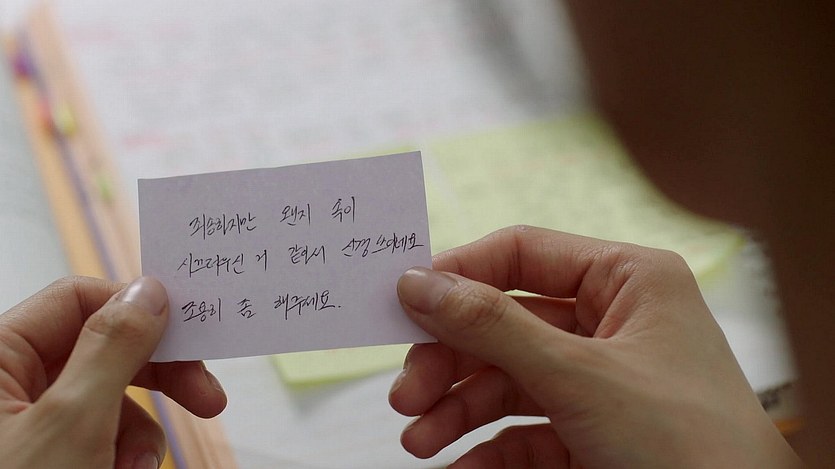 죄송하지만 왠지 속이
시끄러우신 거 같아서 신경 쓰이네요
조용히 좀 해주세요.